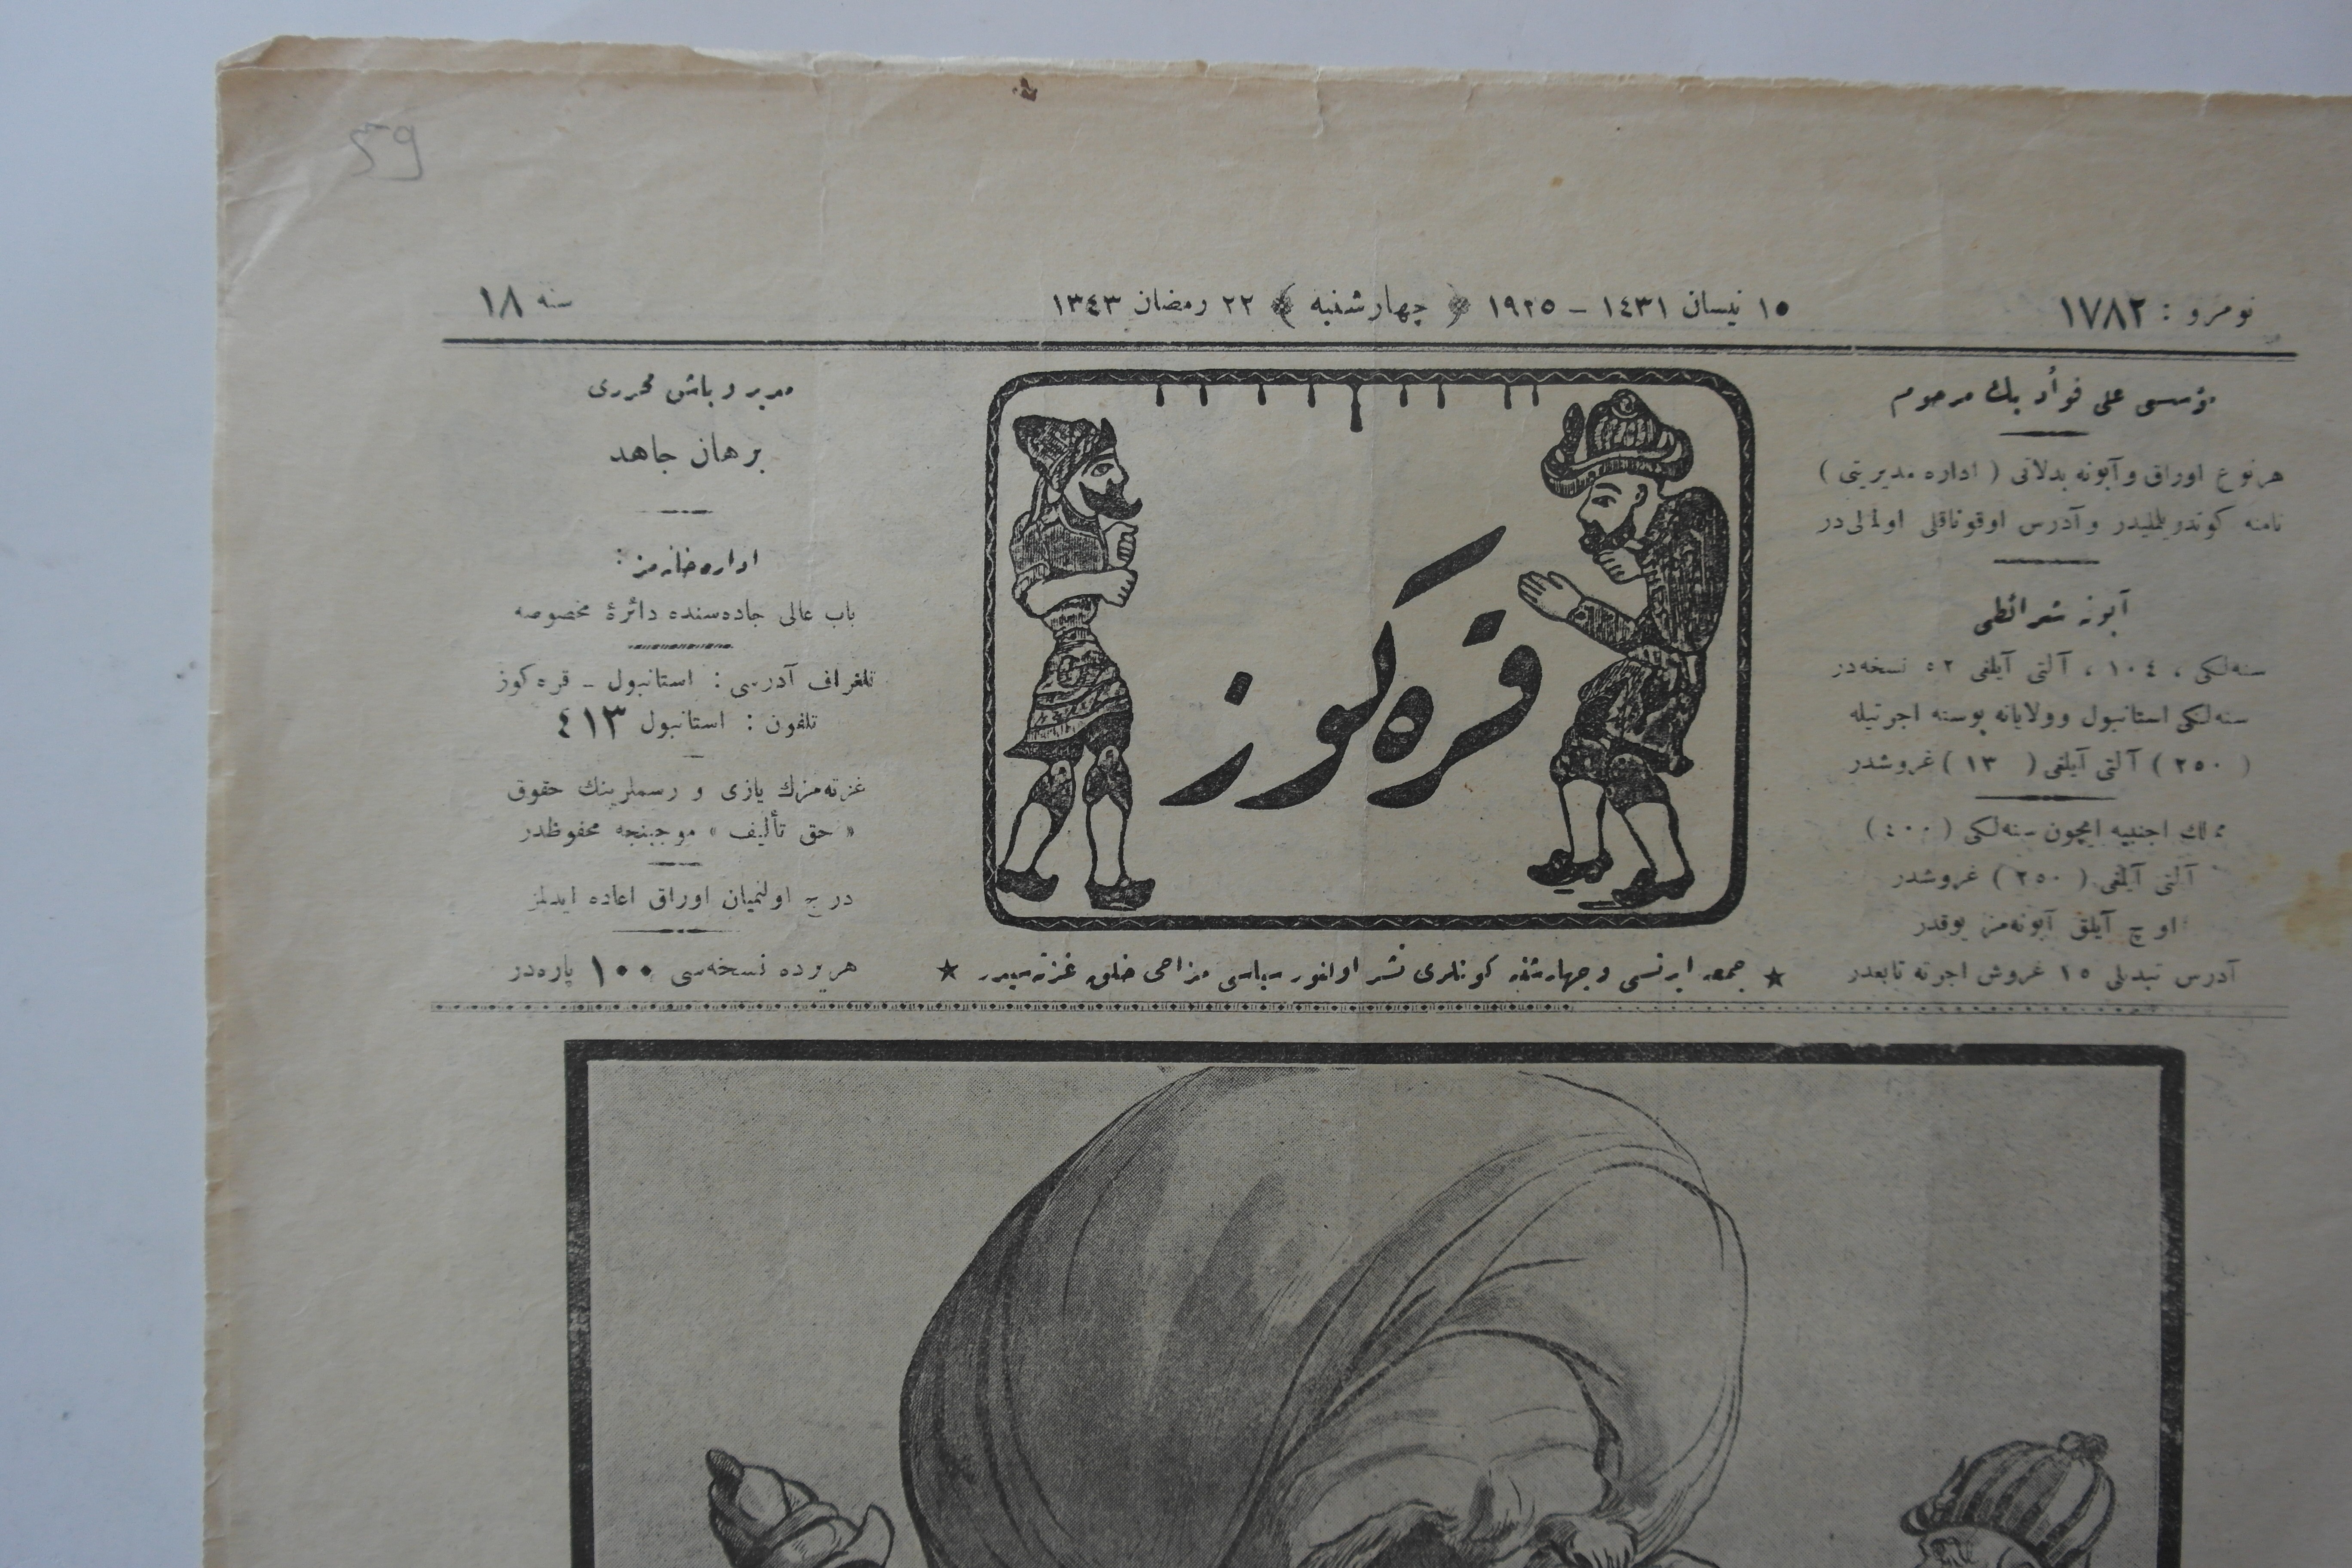 59
نومرو : ١٧٨٢
١٥ نيسان ١٤٣١ – ١٩٢٥ ﴿ چهارشنبه ﴾ ٢٢ رمضان ١٣٤٣
سنه ١٨
مؤسسى على فؤاد بك مرحوم
هر نوع اوراق و آبونه بدلاتى ( اداره مديريتى )
نامنه كوندريلمليدر و آدرس اوقوناقلى اولمالى‌در
آبونه شرائطى
سنه‌لكى ، ١٠٤ ، آلتى آيلغى ٥٢ نسخه‌در
سنه‌لكى استانبول و ولاياته پوسته اجرتيله
( ٢٥٠ ) آلتى آيلغى ( ١٣ ) غروشدر
ممالك اجنبيه ايچون سنه‌لكى ( ٤٠٠ )
آلتى آيلغى ( ٢٥٠ ) غروشدر
اوچ آيلق آبونه‌مز يوقدر
آدرس تبديلى ١٥ غروش اجرته تابعدر
قره‌كوز
★ جمعه ايرتسى و چهارشنبه كونلرى نشر اولنور سياسى مزاحى خلق غزته‌سيدر ★
مدير و باش محررى
برهان جاهد
اداره‌خانه‌مز :
باب عالى جاده‌سنده دائرۀ مخصوصه
تلغراف آدرسى : استانبول – قره‌كوز
تلفون : استانبول ٤١٣
غزته‌مزك يازى و رسملرينك حقوق
« حق تأليف » موجبنجه محفوظدر
درج اولنميان اوراق اعاده ايدلمز
هر يرده نسخه‌سى ١٠٠ پاره‌در